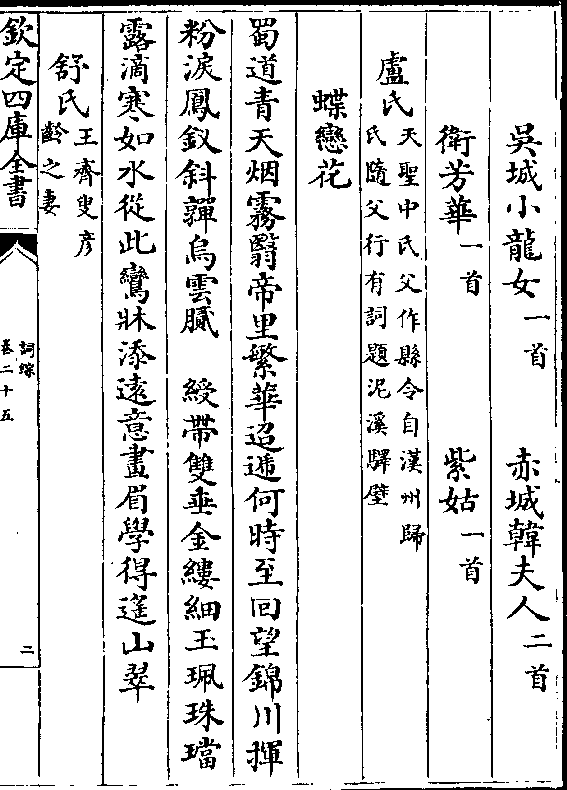 吳城小龍女一首　赤城韓夫人二首
衛芳華一首　紫姑一首
盧氏天聖中氏父作縣令自漢州歸
氏隨父行有詞題泥溪驛壁
蝶戀花
蜀道青天烟霧翳帝里繁華迢遞何時至回望錦川揮
粉淚鳳釵斜嚲烏雲膩　綬帶雙垂金縷細玉珮珠璫
露滴寒如水從此鸞牀添遠意畫眉學得遙山翠
舒氏王齊叟彦
齡之妻
欽定四庫全書
詞綜
卷二十五
二